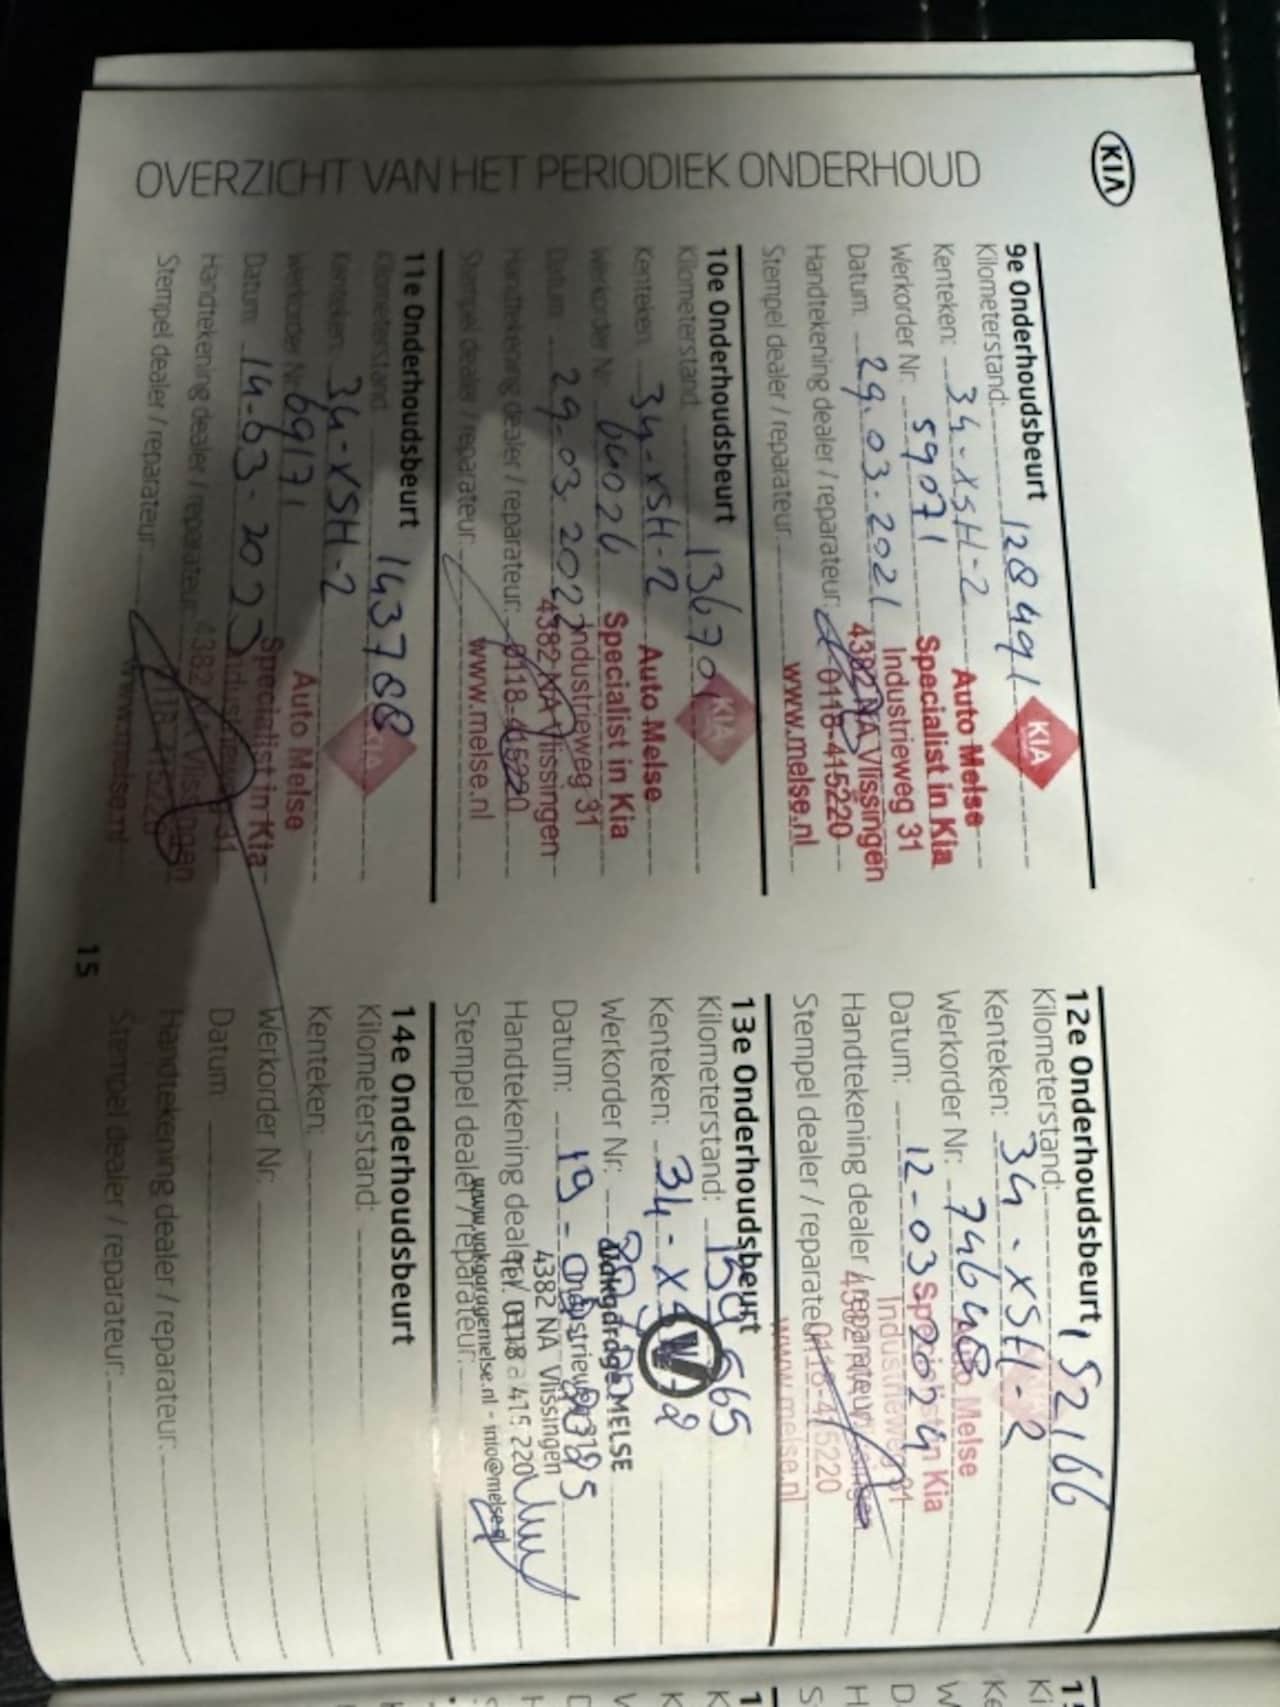 KIA
OVERZICHT VAN HET PERIODIEK ONDERHOUD
9e Onderhoudsbeurt
Kilometerstand: 128491
Kenteken: 34-XSH-2
Werkorder Nr: 59071
Datum: 29.03.2021
Handtekening dealer / reparateur:
Stempel dealer / reparateur:
KIA
Auto Melse
Specialist in Kia
Industrieweg 31
4382 NA Vlissingen
0118-415220
www.melse.nl
10e Onderhoudsbeurt
Kilometerstand: 136701
Kenteken: 34-XSH-2
Werkorder Nr: 64026
Datum: 29.03.2022
Handtekening dealer / reparateur:
Stempel dealer / reparateur:
KIA
Auto Melse
Specialist in Kia
Industrieweg 31
4382 NA Vlissingen
0118-415220
www.melse.nl
11e Onderhoudsbeurt
Kilometerstand: 143788
Kenteken: 34-XSH-2
Werkorder Nr: 69171
Datum: 14-03-2023
Handtekening dealer / reparateur:
Stempel dealer / reparateur:
KIA
Auto Melse
Specialist in Kia
Industrieweg 31
4382 NA Vlissingen
0118-415220
www.melse.nl
12e Onderhoudsbeurt
Kilometerstand: 152166
Kenteken: 34-XSH-2
Werkorder Nr:
Datum: 12-03-2024
Handtekening dealer / reparateur:
Stempel dealer / reparateur:
Auto Melse
Specialist in Kia
Industrieweg 31
4382 NA Vlissingen
0118-415220
www.melse.nl
13e Onderhoudsbeurt
Kilometerstand:
Kenteken: 34-X
Werkorder Nr:
Datum: 19-
Handtekening dealer / reparateur:
Stempel dealer / reparateur:
Vakgarage MELSE
Industrieweg 31
4382 NA Vlissingen
Tel. 0118 - 415 220
www.vakgaragemelse.nl - info@melse.nl
14e Onderhoudsbeurt
Kilometerstand:
Kenteken:
Werkorder Nr:
Datum:
Handtekening dealer / reparateur:
Stempel dealer / reparateur:
15